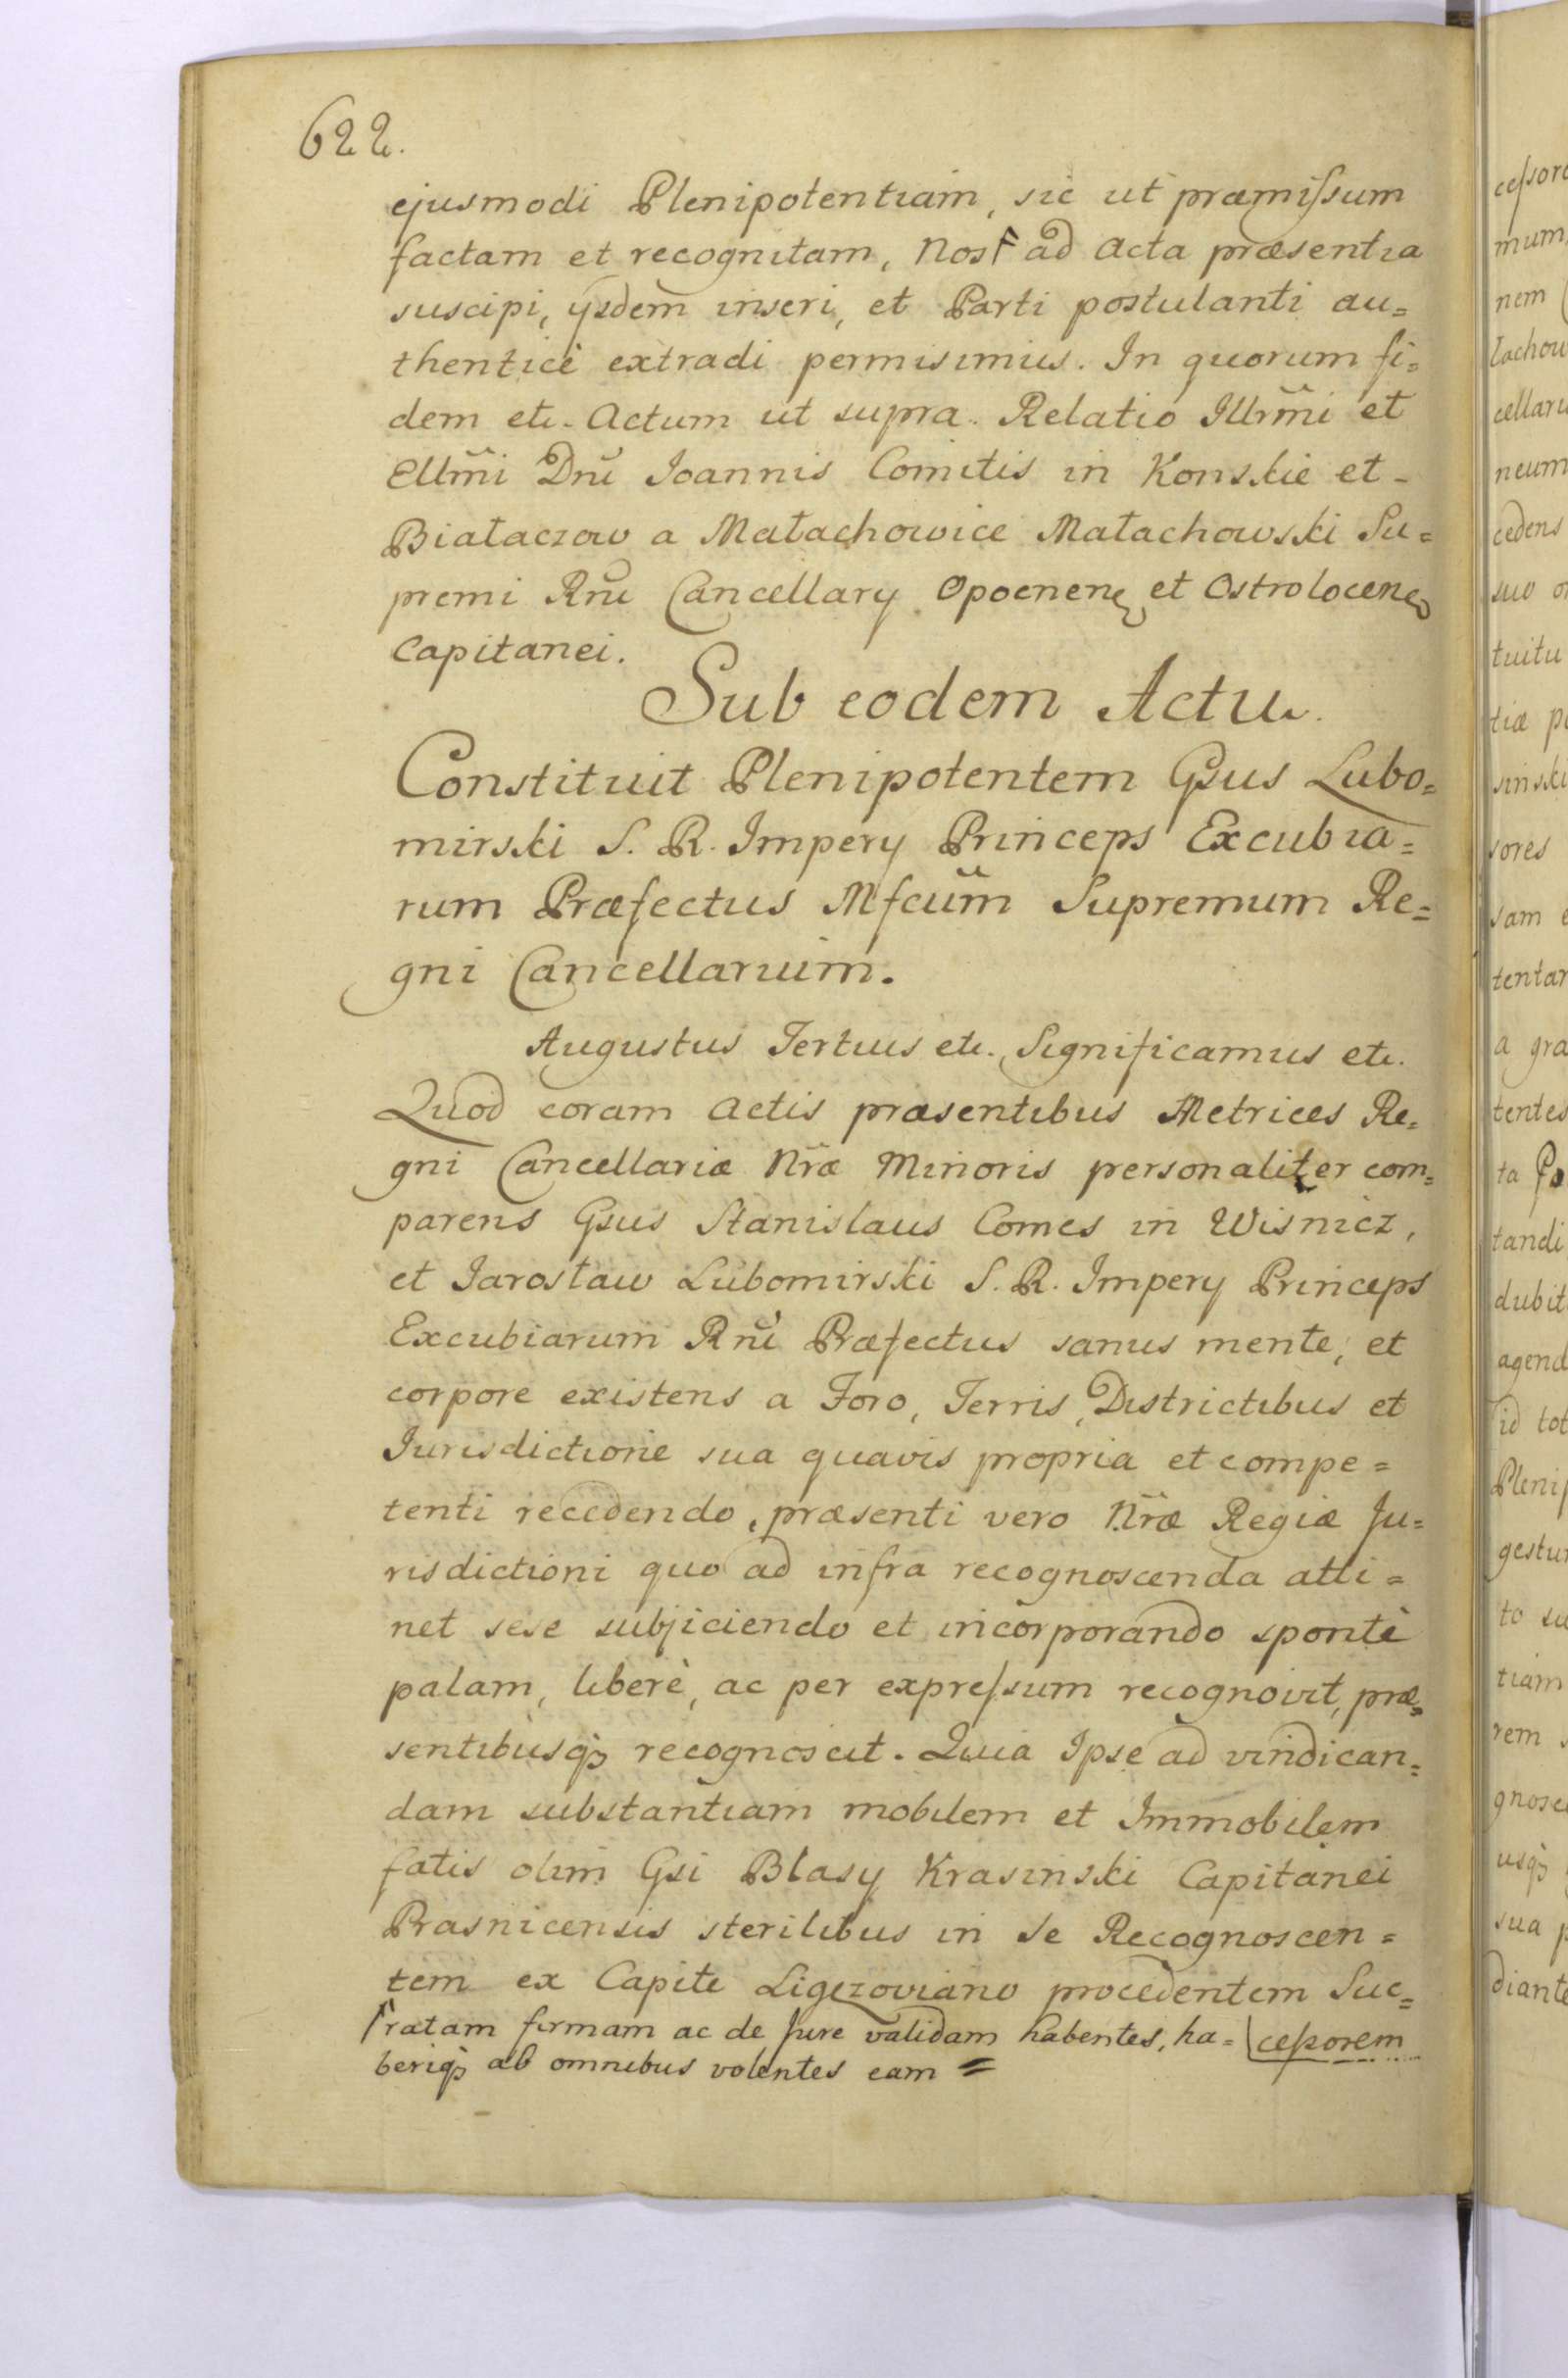 622.
ejusmodi Plenipotentiam, sic ut præmissum
factam et recognitam, Nos Γ ad Acta præsentia
suscipi, ijsdem inseri, et Parti postulanti au=
thenticè extradi permisimus. In quorum fi=
dem etc. Actum ut supra. Relatio Illrm̃i et
Ellm̃i Dnĩ Joannis Comitis in Konskie et
Białaczow a Małachowice Małachowski Su=
premi Rnĩ Cancellarij Opocnen et Ostrolocen
Capitanei.
Sub eodem Actu.
Constituit Plenipotentem Gsus Lubo=
mirski S. R. Imperij Princeps Excubia=
rum Præfectus Mfcum̃ Supremum Re=
gni Cancellarium.
Augustus Tertius etc. Significamus etc.
Quod coram Actis præsentibus Metrices Re=
gni Cancellariæ Nr̃æ Minoris personaliter com=
parens Gsus Stanislaus Comes in Wisnicz,
et Jarosław Lubomirski S. R. Imperij Princeps
Excubiarum Rnĩ Præfectus sanus mente, et
corpore existens a Foro, Terris, Districtibus et
Jurisdictione sua quavis propria et compe=
tenti recedendo, præsenti vero Nr̃æ Regiæ Ju=
risdictioni quo ad infra recognoscenda atti=
net sese subjiciendo et incorporando spontè
palam, liberè, ac per expressum recognovit, præ=
sentibusq3 recognoscit. Quia Ipse ad vindican=
dam substantiam mobilem et Immobilem
fatis olim Gsi Blasij Krasinski Capitanei
Prasnicensis sterilibus in Se Recognoscen=
tem ex Capite Ligezoviano procedentem Suc=
cessorem
Γ ratam firmam ac de Jure validam habentes, ha=
beriq3 ab omnibus volentes eam =